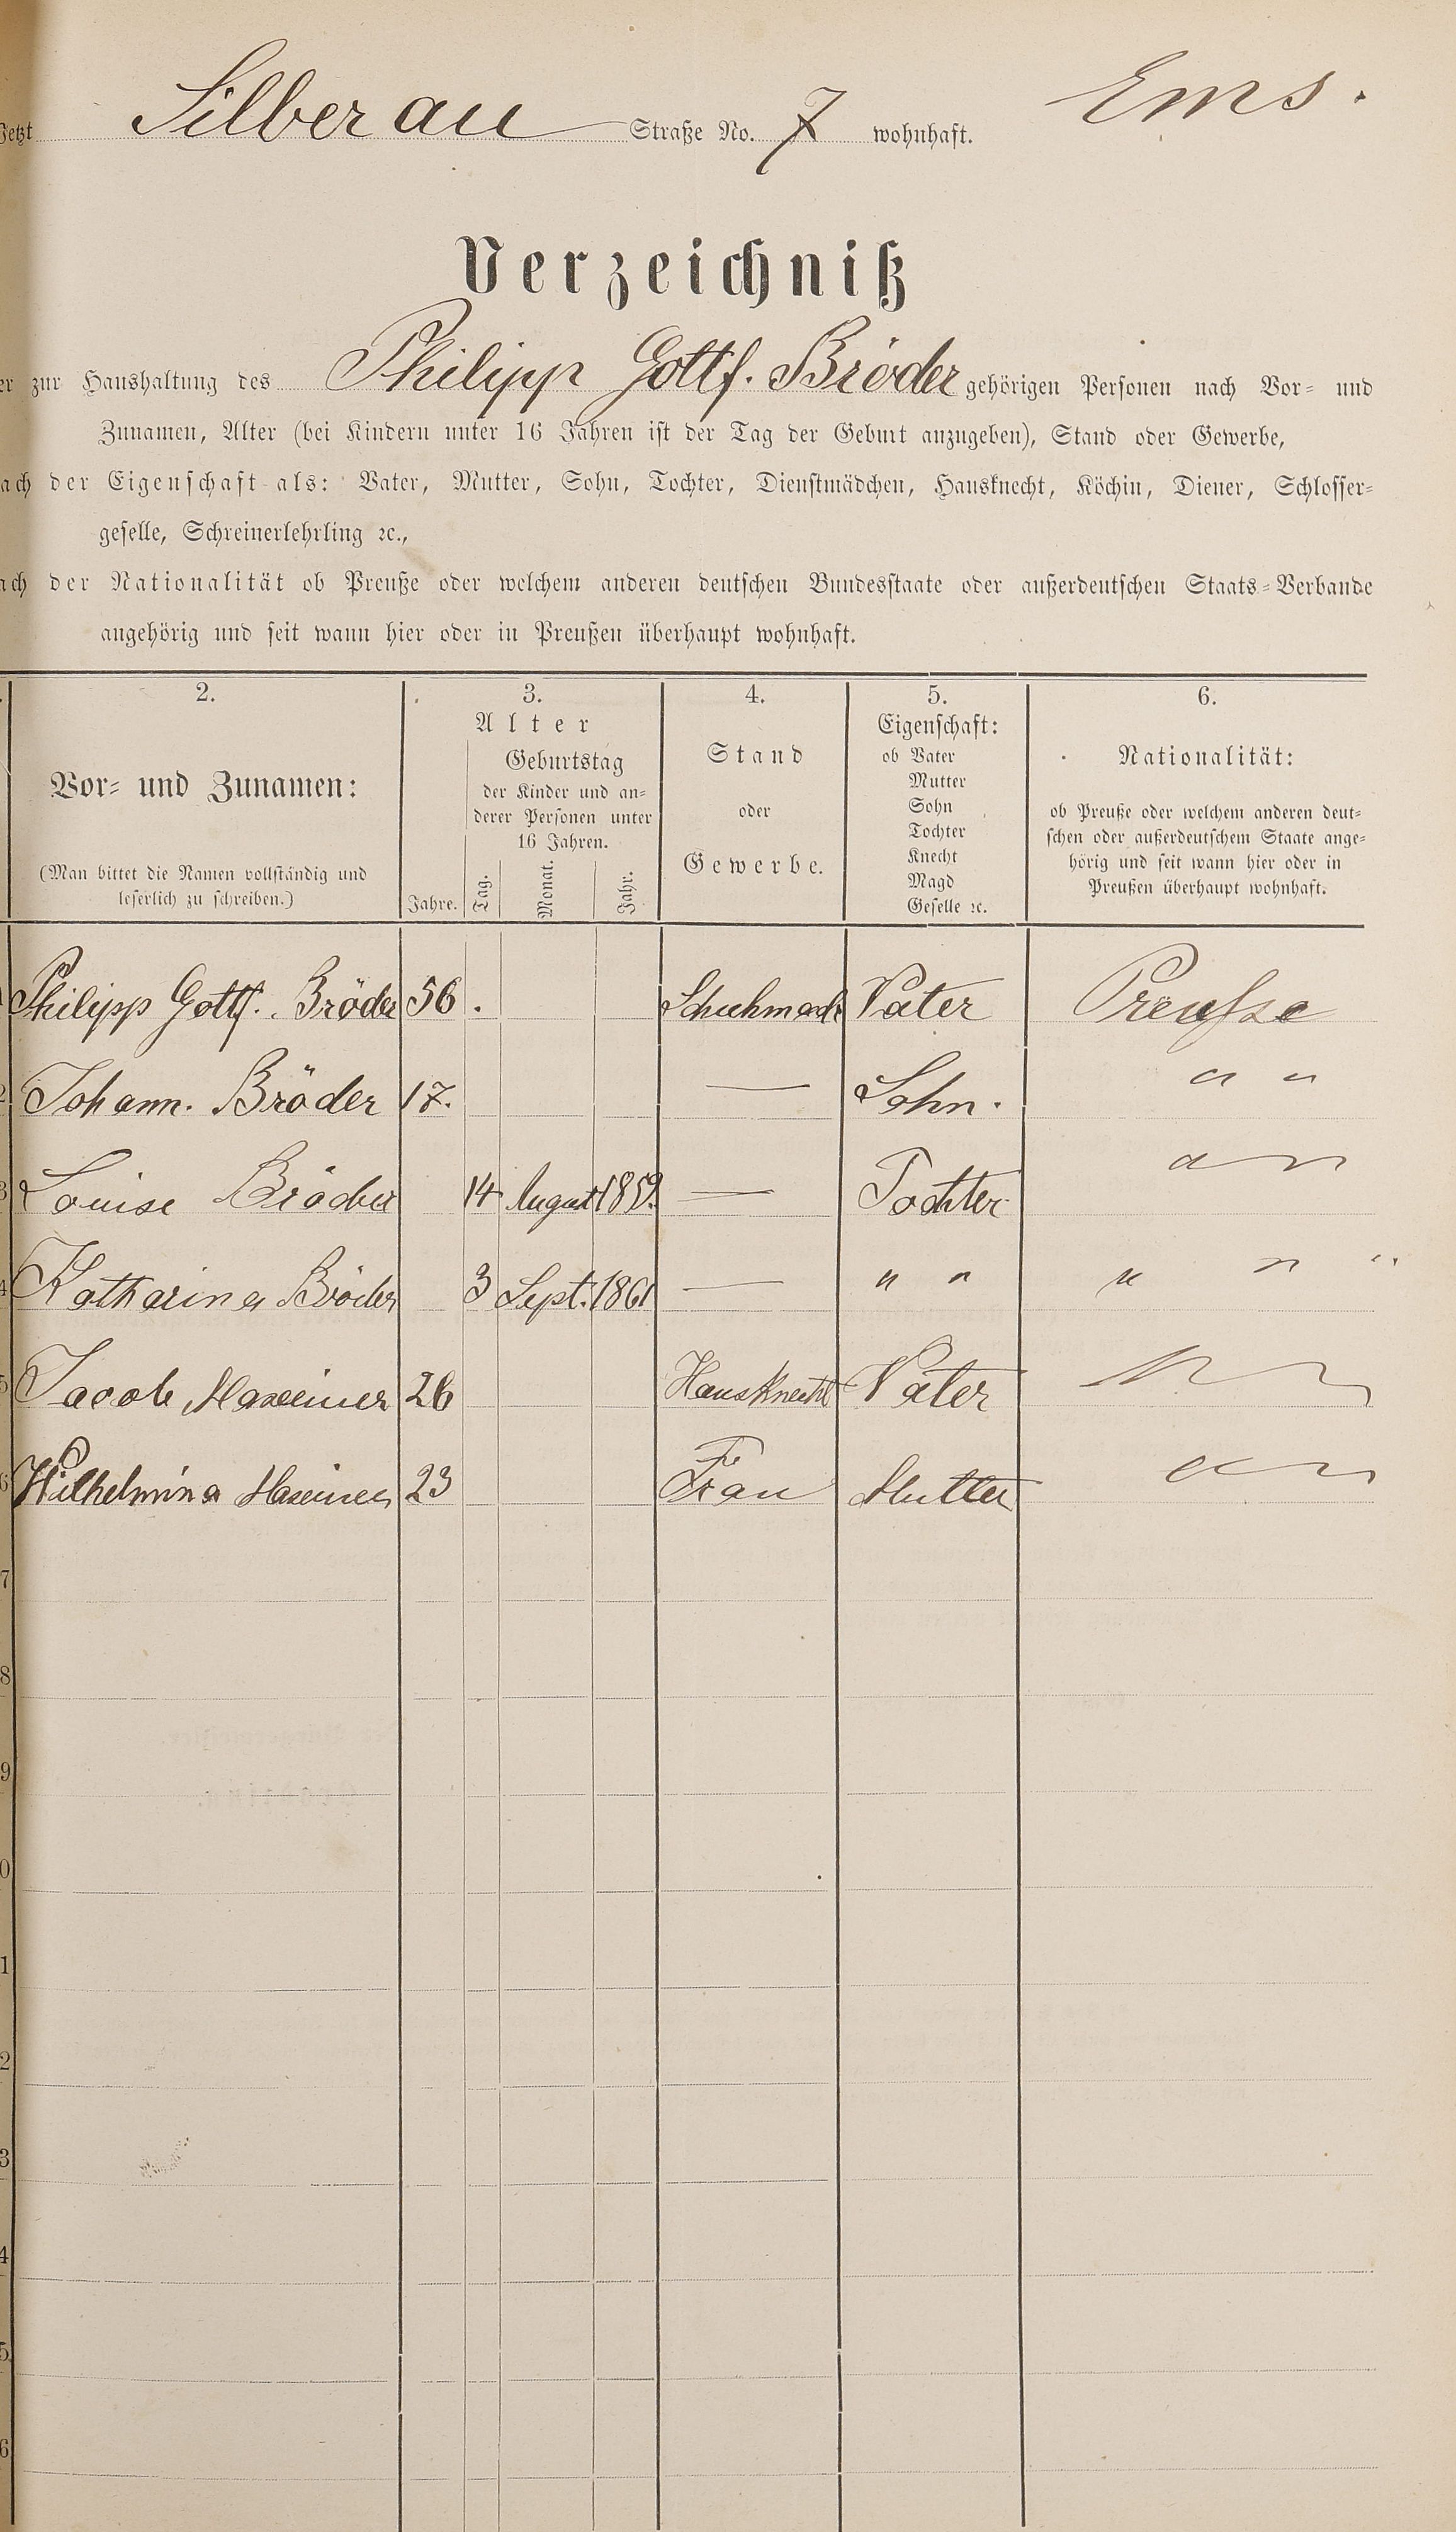 Jetzt Silberau Straße No. 7 wohnhaft. Ems.
Verzeichniß
er zur Haushaltung des Philipp Gottf. Bröder gehörigen Personen nach Vor- und
Zunamen, Alter (bei Kindern unter 16 Jahren ist der Tag der Geburt anzugeben), Stand oder Gewerbe,
ach der Eigenschaft als: Vater, Mutter, Sohn, Tochter, Dienstmädchen, Hausknecht, Köchin, Diener, Schlosser-
geselle, Schreinerlehrling ꝛc.,
ach der Nationalität ob Preuße oder welchem anderen deutschen Bundesstaate oder außerdeutschen Staats-Verbande
angehörig und seit wann hier oder in Preußen überhaupt wohnhaft.
2.
Vor- und Zunamen:
(Man bittet die Namen vollständig und
leserlich zu schreiben.)
3.
Alter
Jahre.
Geburtstag
der Kinder und an-
derer Personen unter
16 Jahren.
Tag. Monat. Jahr.
4.
Stand
oder
Gewerbe.
5.
Eigenschaft:
ob Vater
Mutter
Sohn
Tochter
Knecht
Magd
Geselle ꝛc.
6.
Nationalität:
ob Preuße oder welchem anderen deut-
schen oder außerdeutschem Staate ange-
hörig und seit wann hier oder in
Preußen überhaupt wohnhaft.
1 Philipp Gottf. Bröder 56. Schuhmach. Vater Preußse
2 Johann. Bröder 17. — Sohn. " "
3 Louise Bröder 14 August 1859. — Tochter " "
4 Katharina Bröder 3 Sept. 1861 — " " " " "
5 Jacob Maxeiner 26 Hausknecht Vater " "
6 Wilhelmina Maxeiner 23 Frau Mutter " "
7
8
9
0
1
2
3
4
5
6